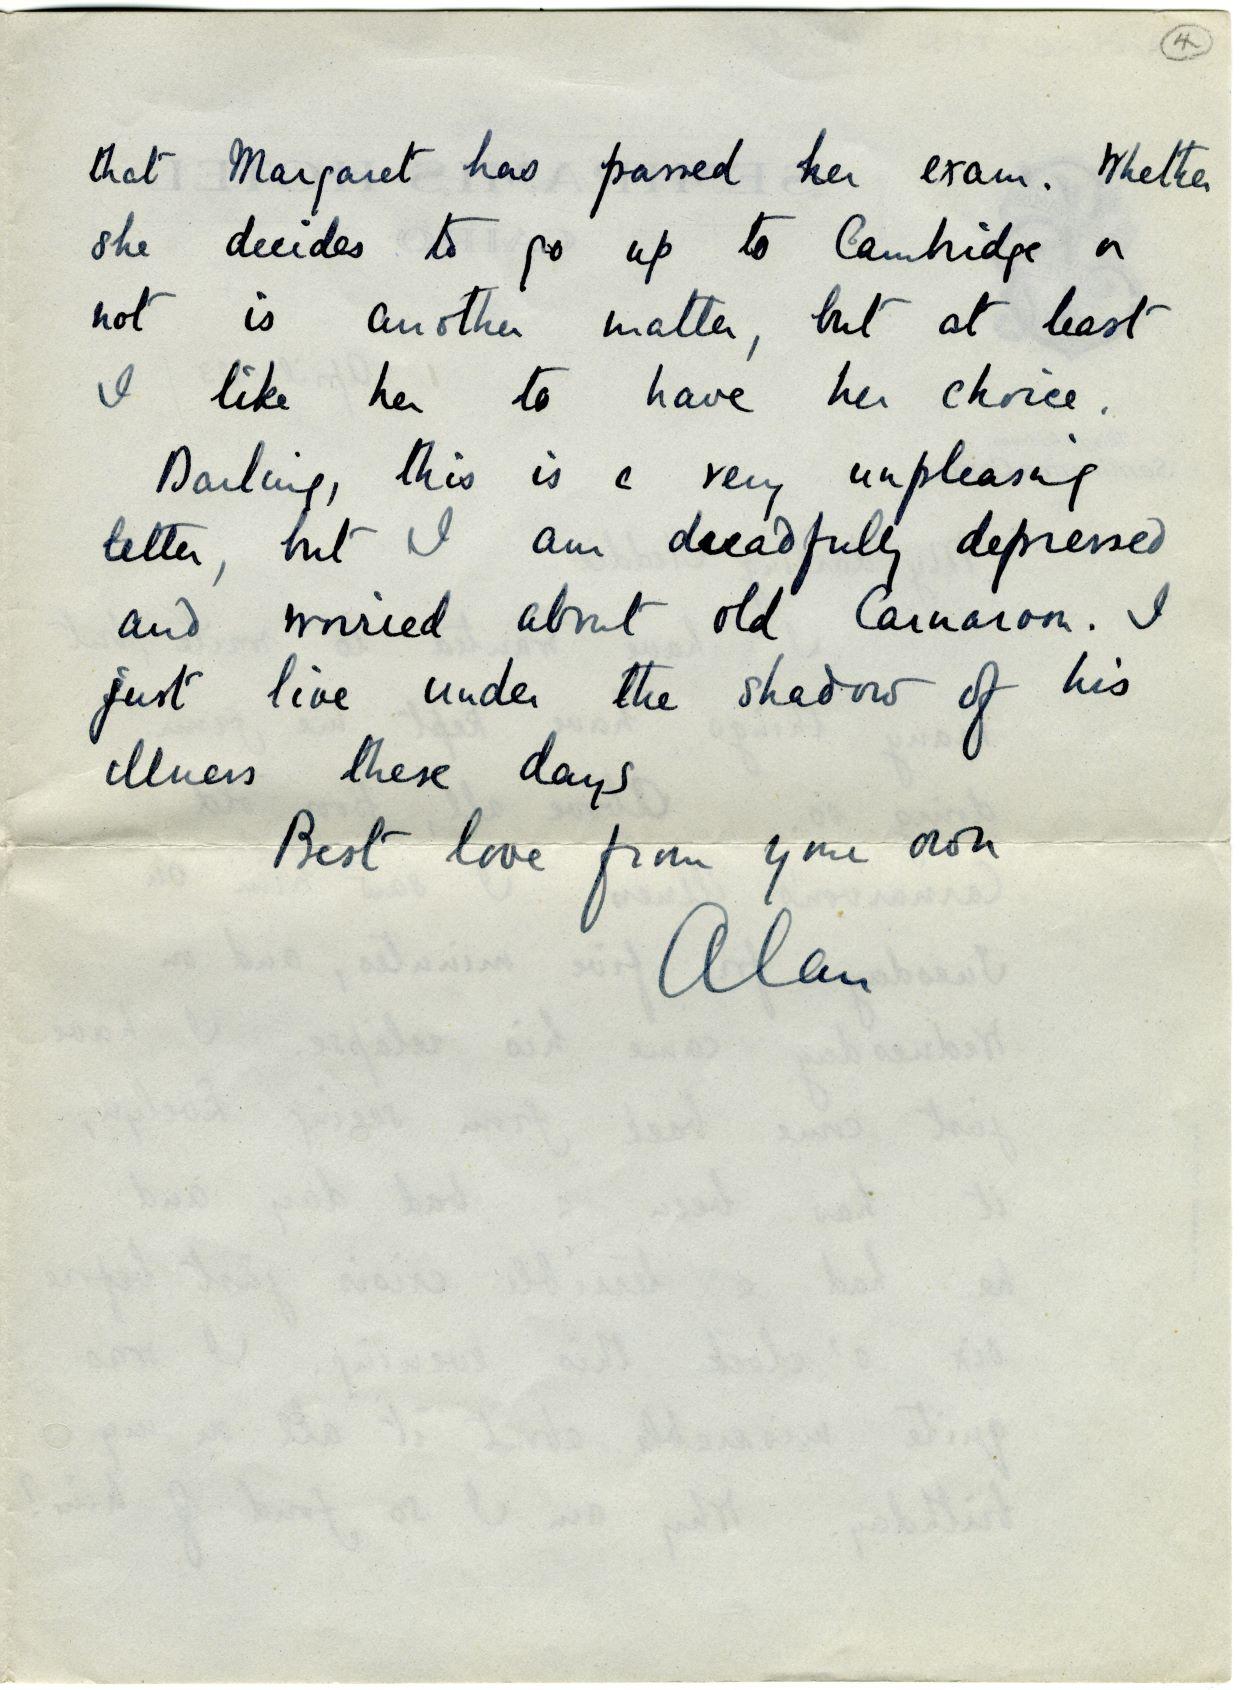 4
that Margaret has passed her exam. Whether
she decides to go up to Cambridge or
not is another matter, but at least
I like her to have her choice.
Darling, this is a very unpleasing
letter, but I am dreadfully depressed
and worried about old Carnarvon. I
just live under the shadow of his
illness these days
Best love from your own
Alan